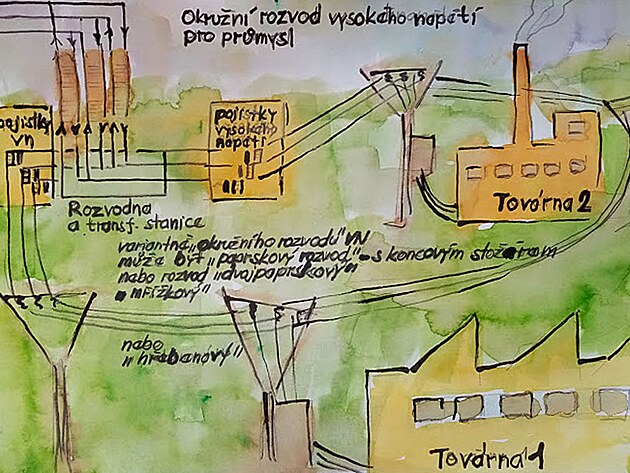 Okružní rozvod vysokého napětí
pro průmysl
pojistky
VN
pojistky
vysokého
napětí
Továrna 2
Rozvodna
a transf. stanice
variantně „okružního rozvodu“ VN
může být „paprskový rozvod“ - s koncovým stožárem
nebo rozvod „dvojpaprskový“
„mřížkový“
nebo
„hřebenový“
Továrna 1